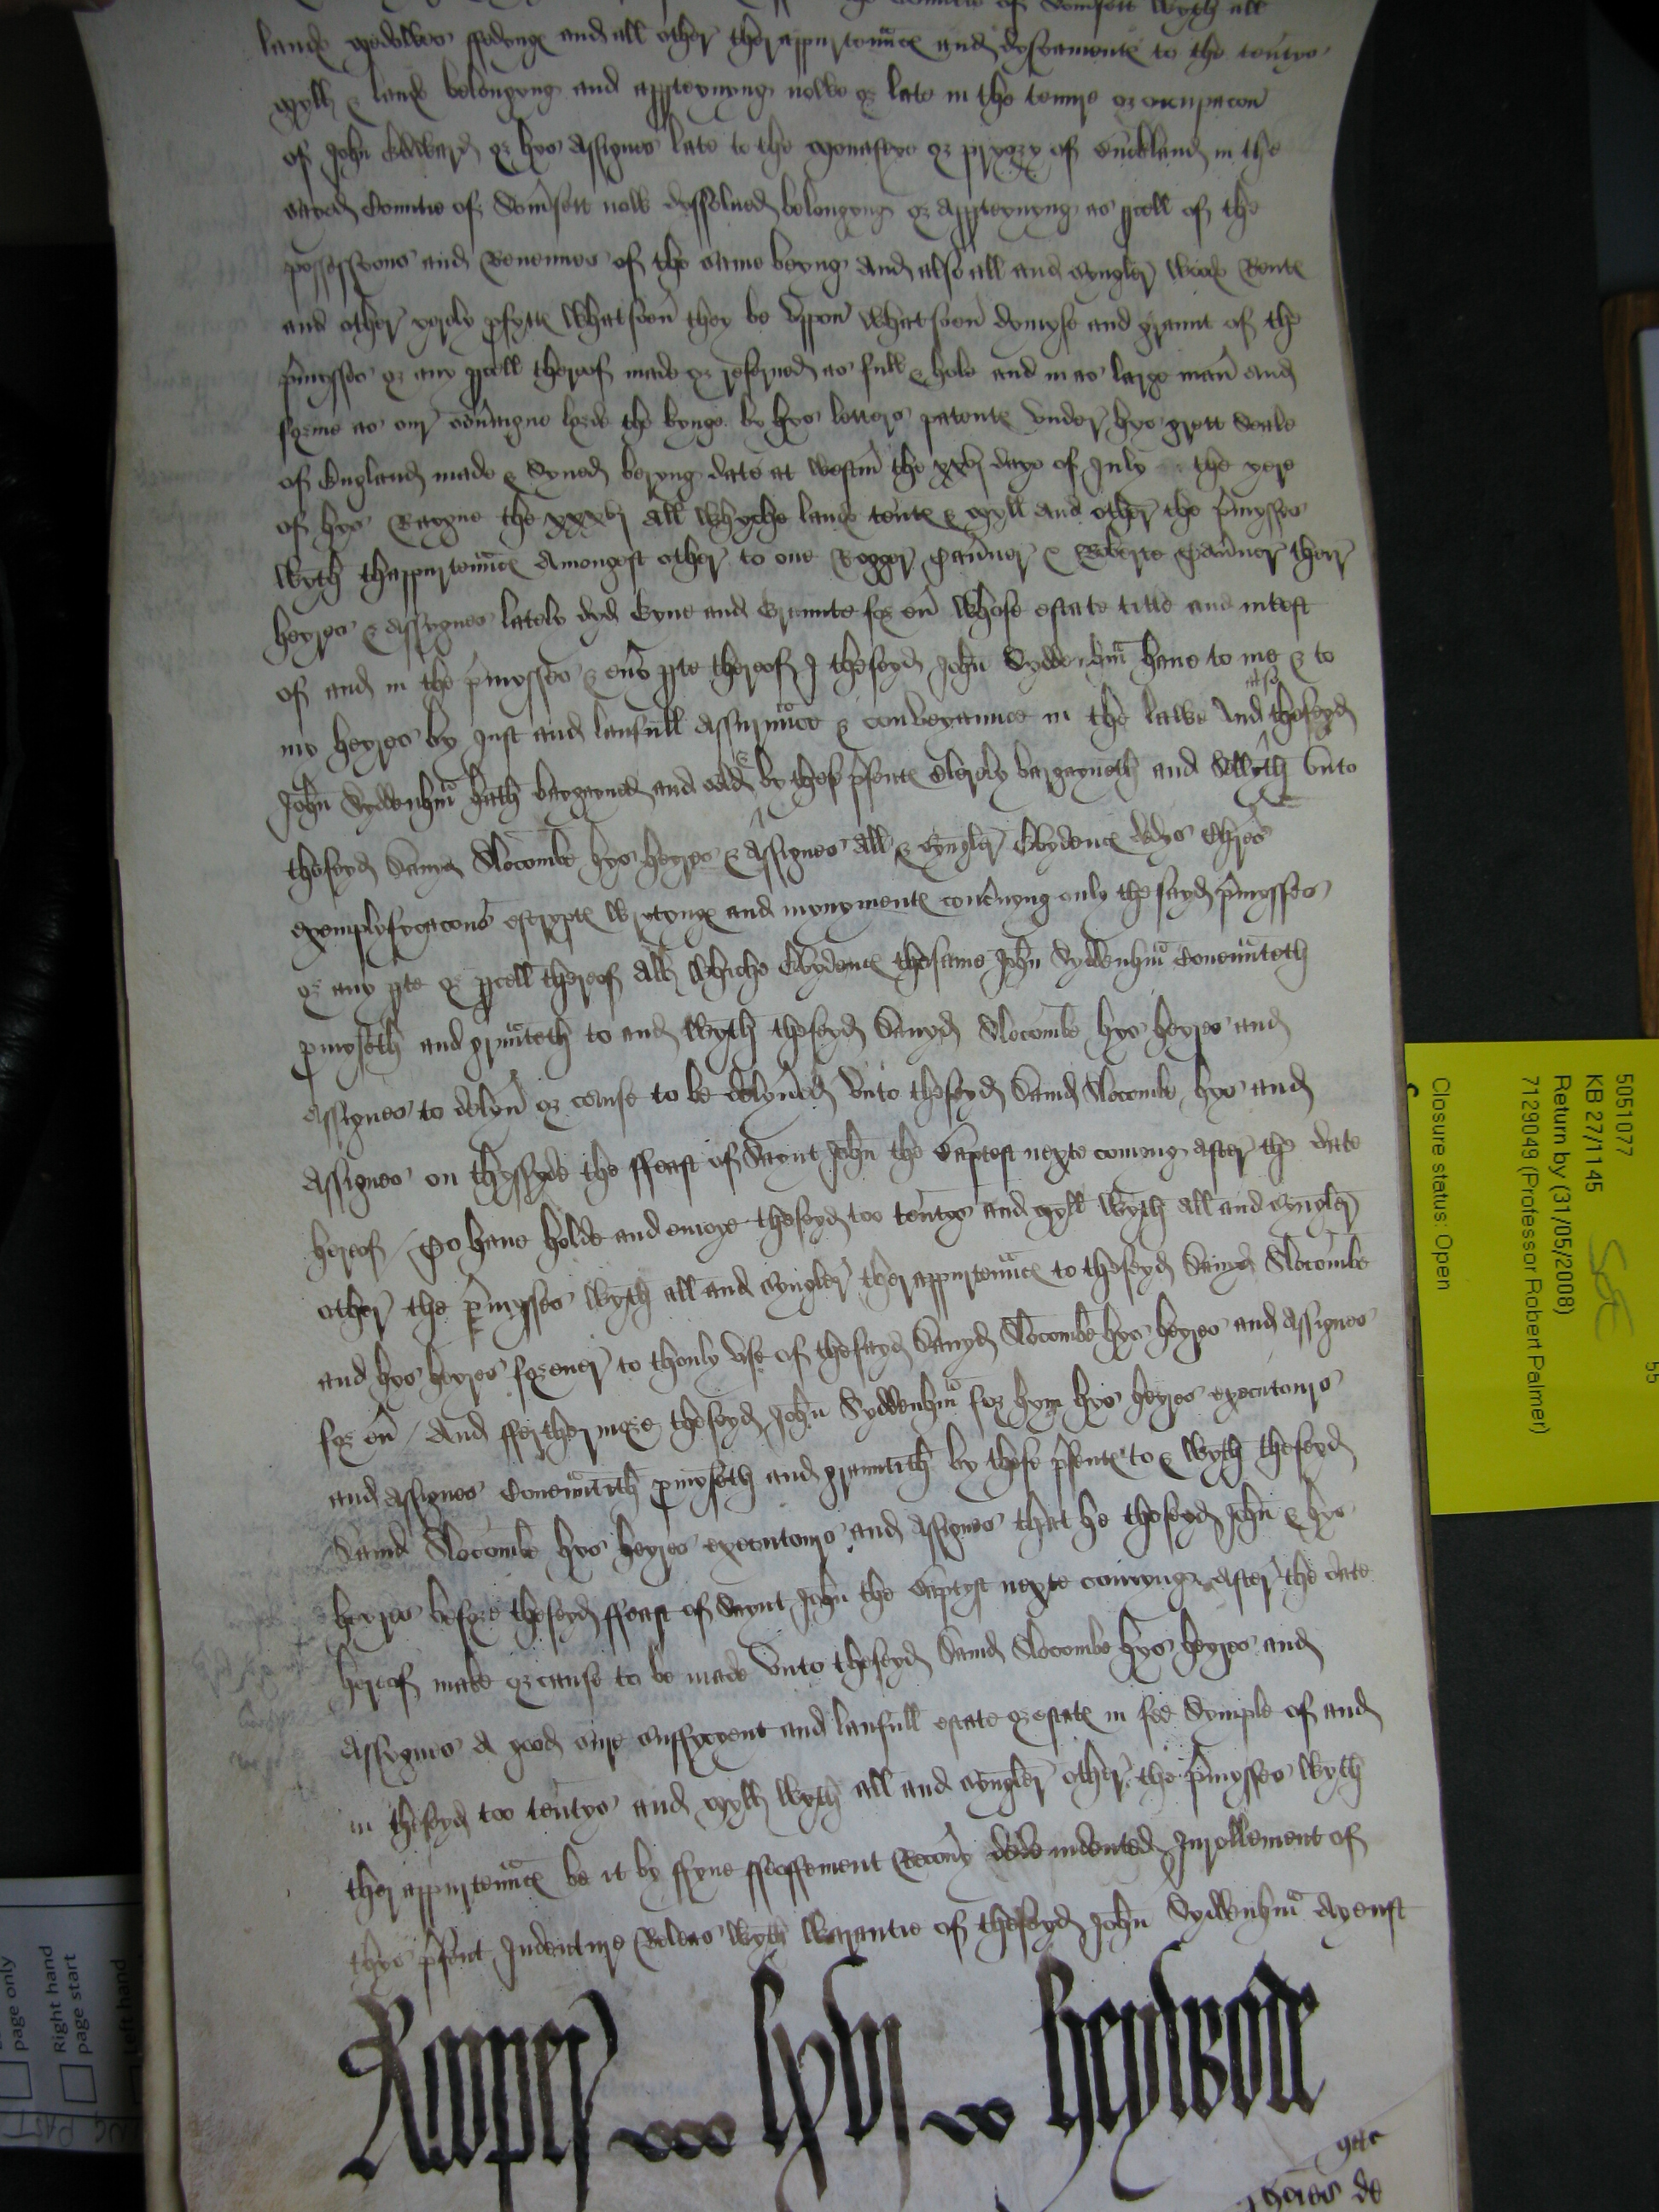 Countie of Somsett wyth all
lands medowes ffedings and all other ther appurtennce and dyscamente to the tentys
Myll & lands belongyng and appteynyng nowe or late in the tenure or occupacon
of John Edward or hys Assignes late to the monasterye or pryory of Buckland in the
sayed Countie of Somsett now dyssolued belongyng or Appteynyng as pcell of the
possessyons and Reuenues of the same beyng And also all and synguler Wods Rents
and other yerely pfytts whatsoeu they be Vppon whatsoeu demyse and graunt of the
pmysses or any pcell thereof made or reserued as full & hole and in as large man and
forme as our sousaigne lorde the kynge by hys letters patents Under hys grett Seale
of England made & Syned beryng date at Westm the xxvj daye of July the yere
of hys Raygne the xxxvj All whyche lands tents & Myll And other the pmysses
wyth thappurtennce Amongest other to one Rogger Tauner & Roberte Tauner ther
heyres & Assygnes lately dyd Gyue and Graunte for eu Whose estate title and intest
of and in the pmysses & euy pte thereof I the seyd John Syddenhm haue to me & to
my heyres by just and laufull Assurnce & conveyaunce in the lawe And also the seyd
John Syddenhm hath bargayned and sold & by thes psents clerely bargayneth and Sellyth Vnto
the seyd Dauyd Slocombe hys heyres & Assignes All & synguler Evydence Dedys Chres
exemplyfycacons escrypts wrytyngs and mynyments concnyng only the sayd pmysses
or any pte or pcell thereof All whiche Evydence the same John Syddenhm Couennteth
pmyseth and grnteth to and wyth the seyd Dauyd Slocombe hys heyres and
Assignes to delyu or cause to be delyued Vnto the seyd Dauid Slocombe hys and
Assignes on thyssyde the ffeast of Saynt John the Baptest nexte comyng after the date
hereof / To haue holde and enioye the seyd too tentys and myll wyth all and synguler
other the pmysses wyth all and synguler ther appurtennce to the seyd Dauyd Slocombe
and hys heyres for euer to thonly use of the sayd Dauyd Slocombe hys heyres and Assignes
for eu / And ffurthermore the seyd John Syddenhm for hym hys heyres executours
and Assignes Couenntith pmyseth and grauntith by these psents to & wyth the seyd
Dauid Slocombe hys heyres executours and Assignes that he the seyd John & hys
heyres before the seyd ffeast of Saynt John the Baptyst nexte comyng After the date
hereof make or cause to be made Vnto the seyd Dauid Slocombe hys heyres and
Assygnes A good sure suffycyent and laufull estate or estats in fee Symple of and
in the seyd too tentys and myll wyth all and synguler other the pmysses wyth
ther appurtennce be it by ffyne ffeoffement Recouy dede indented Inrollement of
thys psent Indenture Releas wyth Warantie of the seyd John Syddenhm Ayenst
5051077
KB 27/1145
Return by (31/05/2008)
7129049 (Professor Robert Palmer)
Closure status: Open
55
page only
Right hand
page start
Left hand